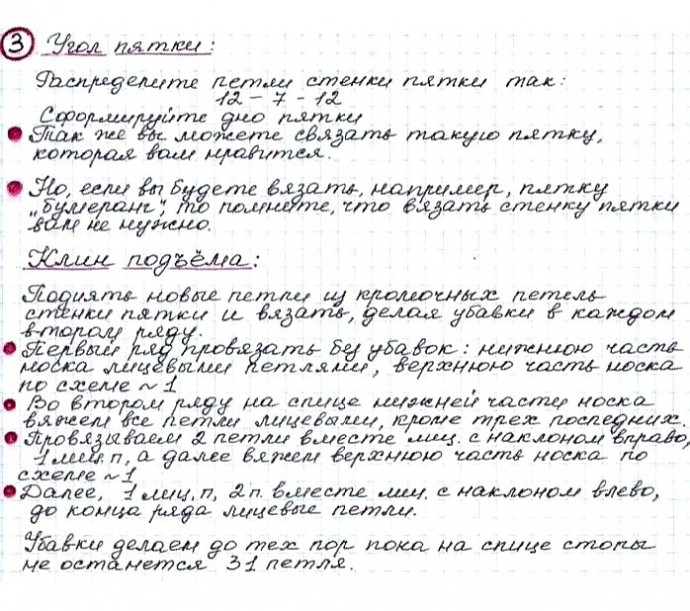 3 Угол пятки:
Распределите петли стенки пятки так:
12 - 7 - 12
Сформируйте дно пятки
Так же вы можете связать такую пятку,
которая вам нравится.
Но, если вы будете вязать, например, пятку
„Бумеранг", то помните, что вязать стенку пятки
вам не нужно.
Клин подъёма:
Поднять новые петли из кромочных петель
стенки пятки и вязать, делая убавки в каждом
втором ряду.
Первый ряд провязать без убавок: нижнюю часть
носка лицевыми петлями, верхнюю часть носка
по схеме ~ 1
Во втором ряду на спице нижней части носка
вяжем все петли лицевыми, кроме трех последних.
Провязываем 2 петли вместе лиц. с наклоном вправо,
1 лиц. п, а далее вяжем верхнюю часть носка по
схеме ~ 1
Далее, 1 лиц. п, 2 п. вместе лиц. с наклоном влево,
до конца ряда лицевые петли.
Убавки делаем до тех пор пока на спице стопы
не останется 31 петля.